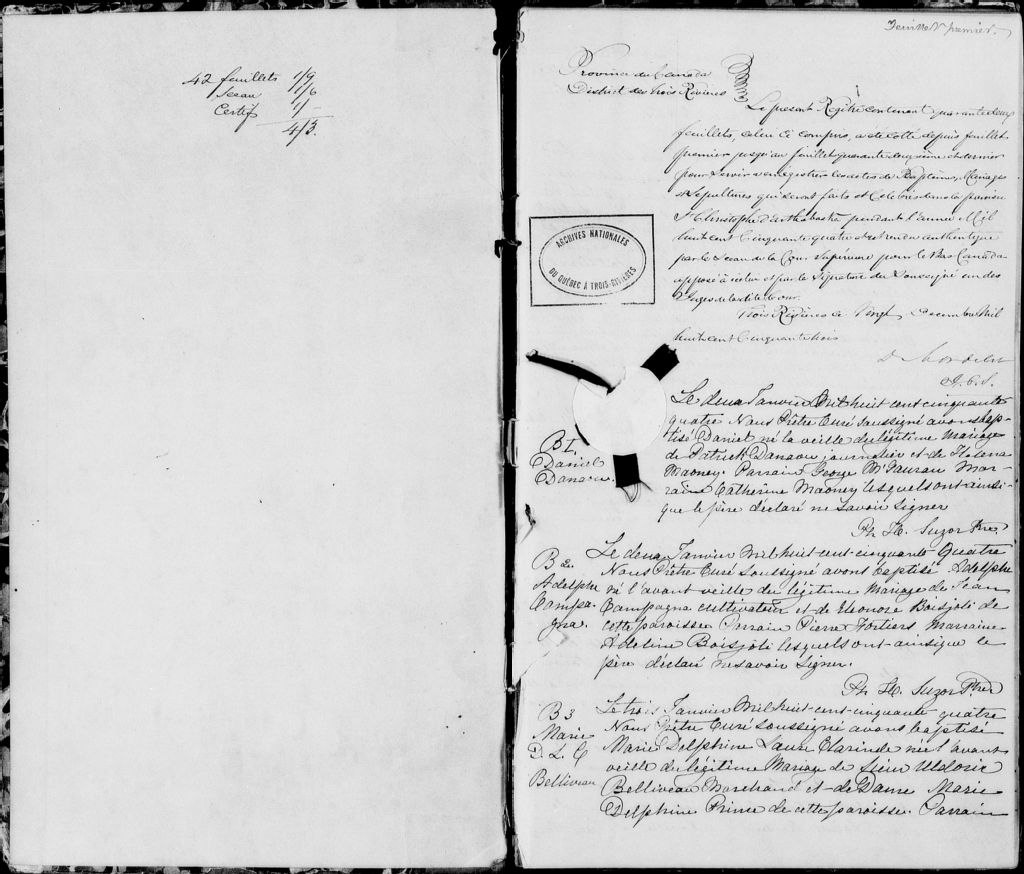 42 feuillets 1/9
Sceau 1/6
Certif 1/-
4/3.
Feuillet premier.
Province du Canada
District des Trois Rivières
Le présent Régître contenant quarante deux
feuillets, celui ci compris, a été cotté depuis feuillet
premier jusqu'au feuillet quarante deuxième et dernier
pour servir à enregistrer les actes de Baptêmes, Mariages
et Sépultures qui seront faits et célébrés dans la paroisse
St Christophe d'Arthabaska pendant l'année Mil
huit cent cinquante quatre et est rendu authentique
par le Sceau de la Cour Supérieure pour le Bas Canada
apposé à icelui et par la Signature du Soussigné un des
Juges de la dite Cour.
Trois Rivières ce Vingt Décembre Mil
huit cent Cinquante trois
D Mondelet
J. C. S.
ARCHIVES NATIONALES
DU QUÉBEC À TROIS-RIVIÈRES
B 1
Daniel
Danaou.
Le deux Janvier Mil huit cent cinquante
quatre Nous Prêtre Curé soussigné avons bap-
tisé Daniel né la veille du légitime Mariage
de Patrick Danaou journalier et de Helena
Maoney. Parrain George Mc Gauran Mar-
raine Catherine Maoney lesquels ont ainsi
que le père déclaré ne savoir signer
Ph H. Suzor Ptre
B 2.
Adelphe
Campa-
gna.
Le deux Janvier Mil huit cent cinquante Quatre
Nous Prêtre Curé soussigné avons baptisé Adelphe
né l'avant veille du légitime Mariage de Jean
Campagna cultivateur et de Eleonore Boisjoli de
cette paroisse Parrain Pierre Fortiers Marraine
Adeline Boisjoli lesquels ont ainsi que le
père déclaré ne savoir signer.
Ph H. Suzor Ptre
B 3
Marie
D. L. C
Belliveau
Le trois Janvier Mil huit cent cinquante quatre
Nous Prêtre Curé soussigné avons baptisé
Marie Delphine Laure Clarinde née l'avant
veille du légitime Mariage de Sieur Uldoric
Belliveau Marchand et de Dame Marie
Delphine Prince de cette paroisse. Parrain